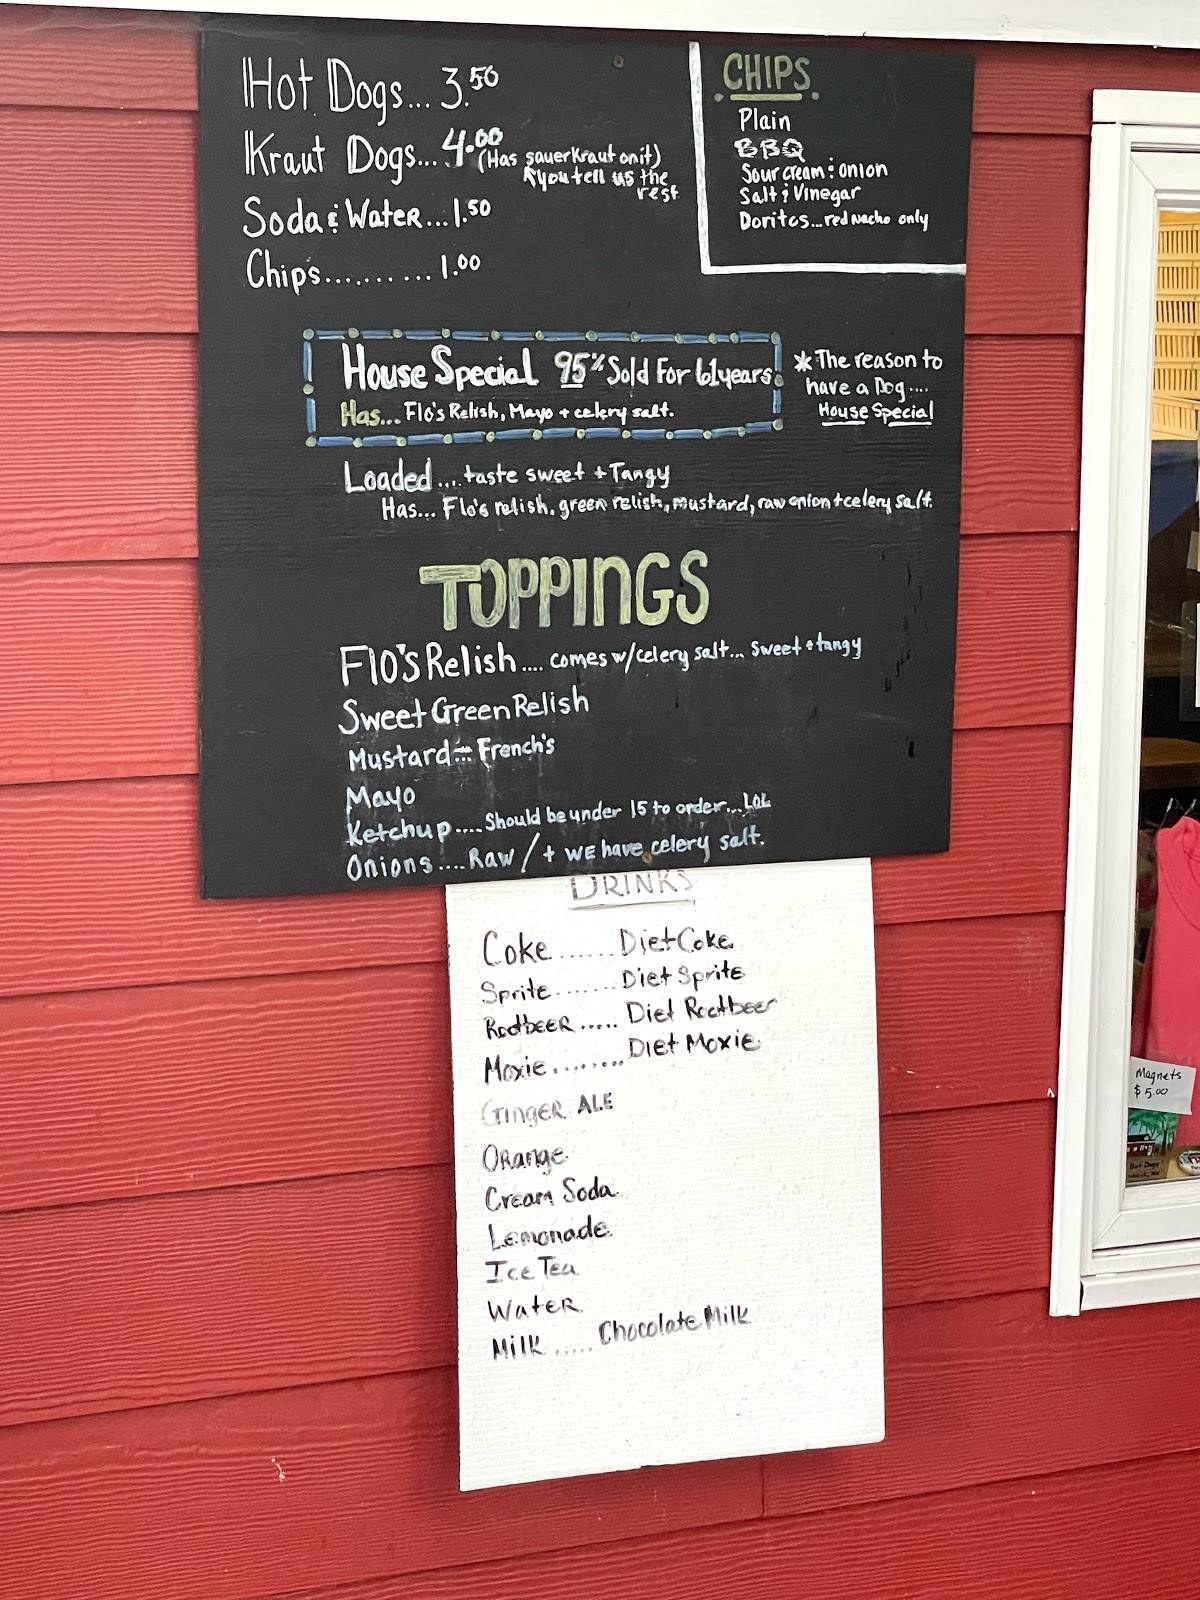 Hot Dogs... 3.50
Kraut Dogs... 4.00 (Has sauerkraut on it)
& you tell us the
rest
Soda & Water... 1.50
Chips.......... 1.00
CHIPS
Plain
BBQ
Sour cream & onion
Salt & Vinegar
Doritos... red Nacho only
House Special 95% Sold For 61 years
Has... Flo's Relish, Mayo + celery salt.
* The reason to
have a Dog....
House Special
Loaded.... taste sweet + Tangy
Has... Flo's relish, green relish, mustard, raw onion + celery salt.
TOPPINGS
Flo's Relish.... comes w/celery salt... sweet + tangy
Sweet Green Relish
Mustard... French's
Mayo
Ketchup.... Should be under 15 to order... LOL
Onions.... Raw / + WE have celery salt.
DRINKS
Coke....... Diet Coke
Sprite........ Diet Sprite
Rootbeer..... Diet Rootbeer
Moxie........ Diet Moxie
Ginger ALE
Orange
Cream Soda
Lemonade
Ice Tea
Water
Milk..... Chocolate Milk
Magnets
$5.00